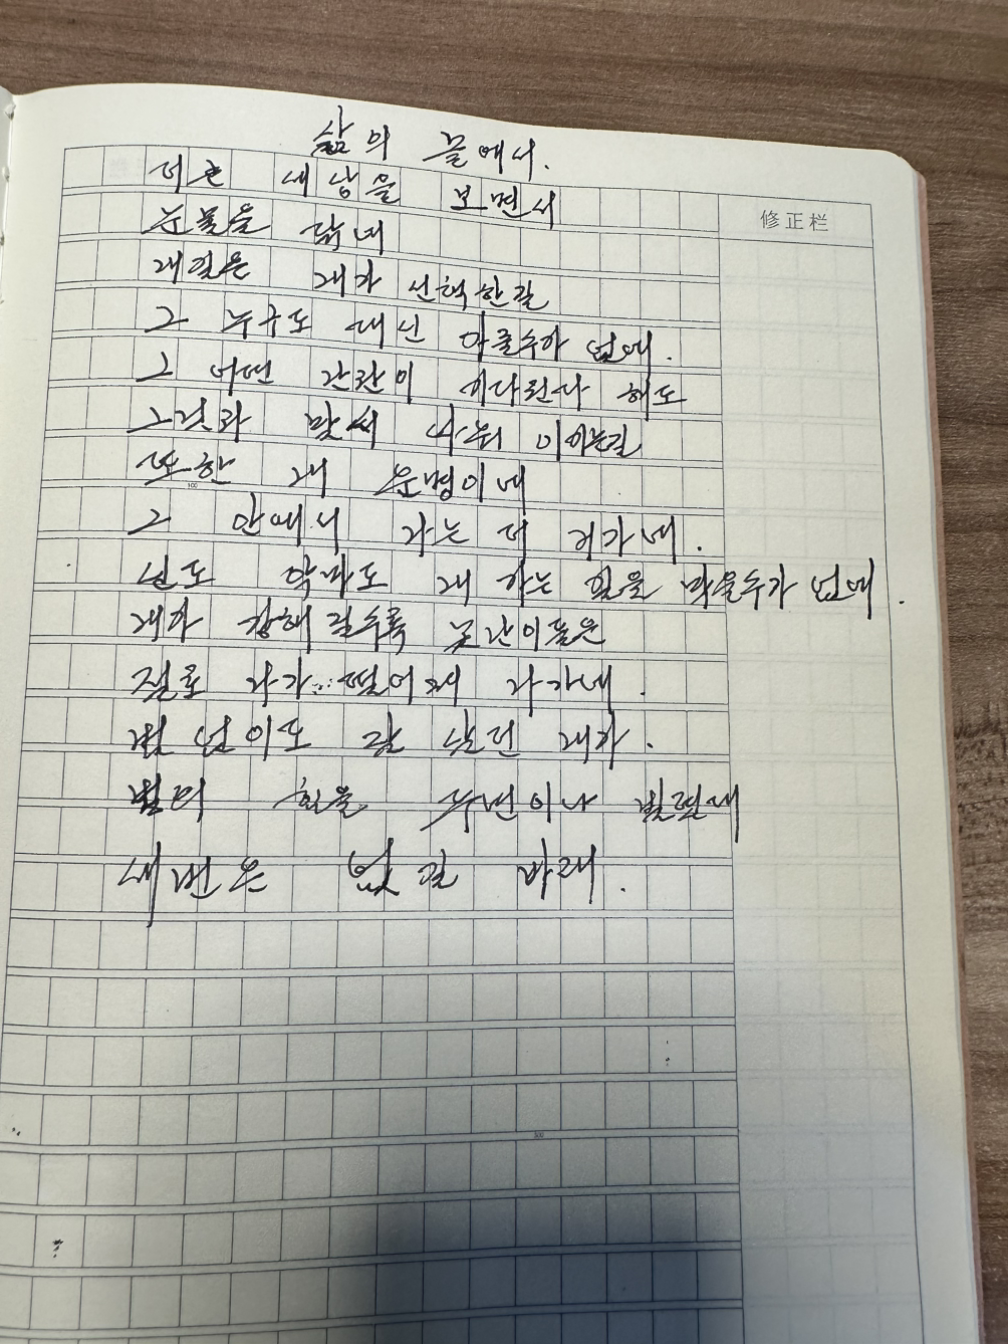 삶의 끝에서.
修正栏
더는 세상을 보면서
눈물을 닦네
내일은 내가 선택한길
그 누구도 대신 아홀수가 없네.
그 어떤 간란이 기다린다 해도
그것과 맞서 싸워 이기는길
또한 내 운명이네
그 안에서 나는 더 커가네.
신도 악마도 내 가는 힘을 막을수가 없네.
내가 강해 질수록 못난이들은
절로 나가 떨어져 나가네.
별 없이도 잘 살던 내가.
별의 힘을 두번이나 빌렸네
세번은 없길 바래.